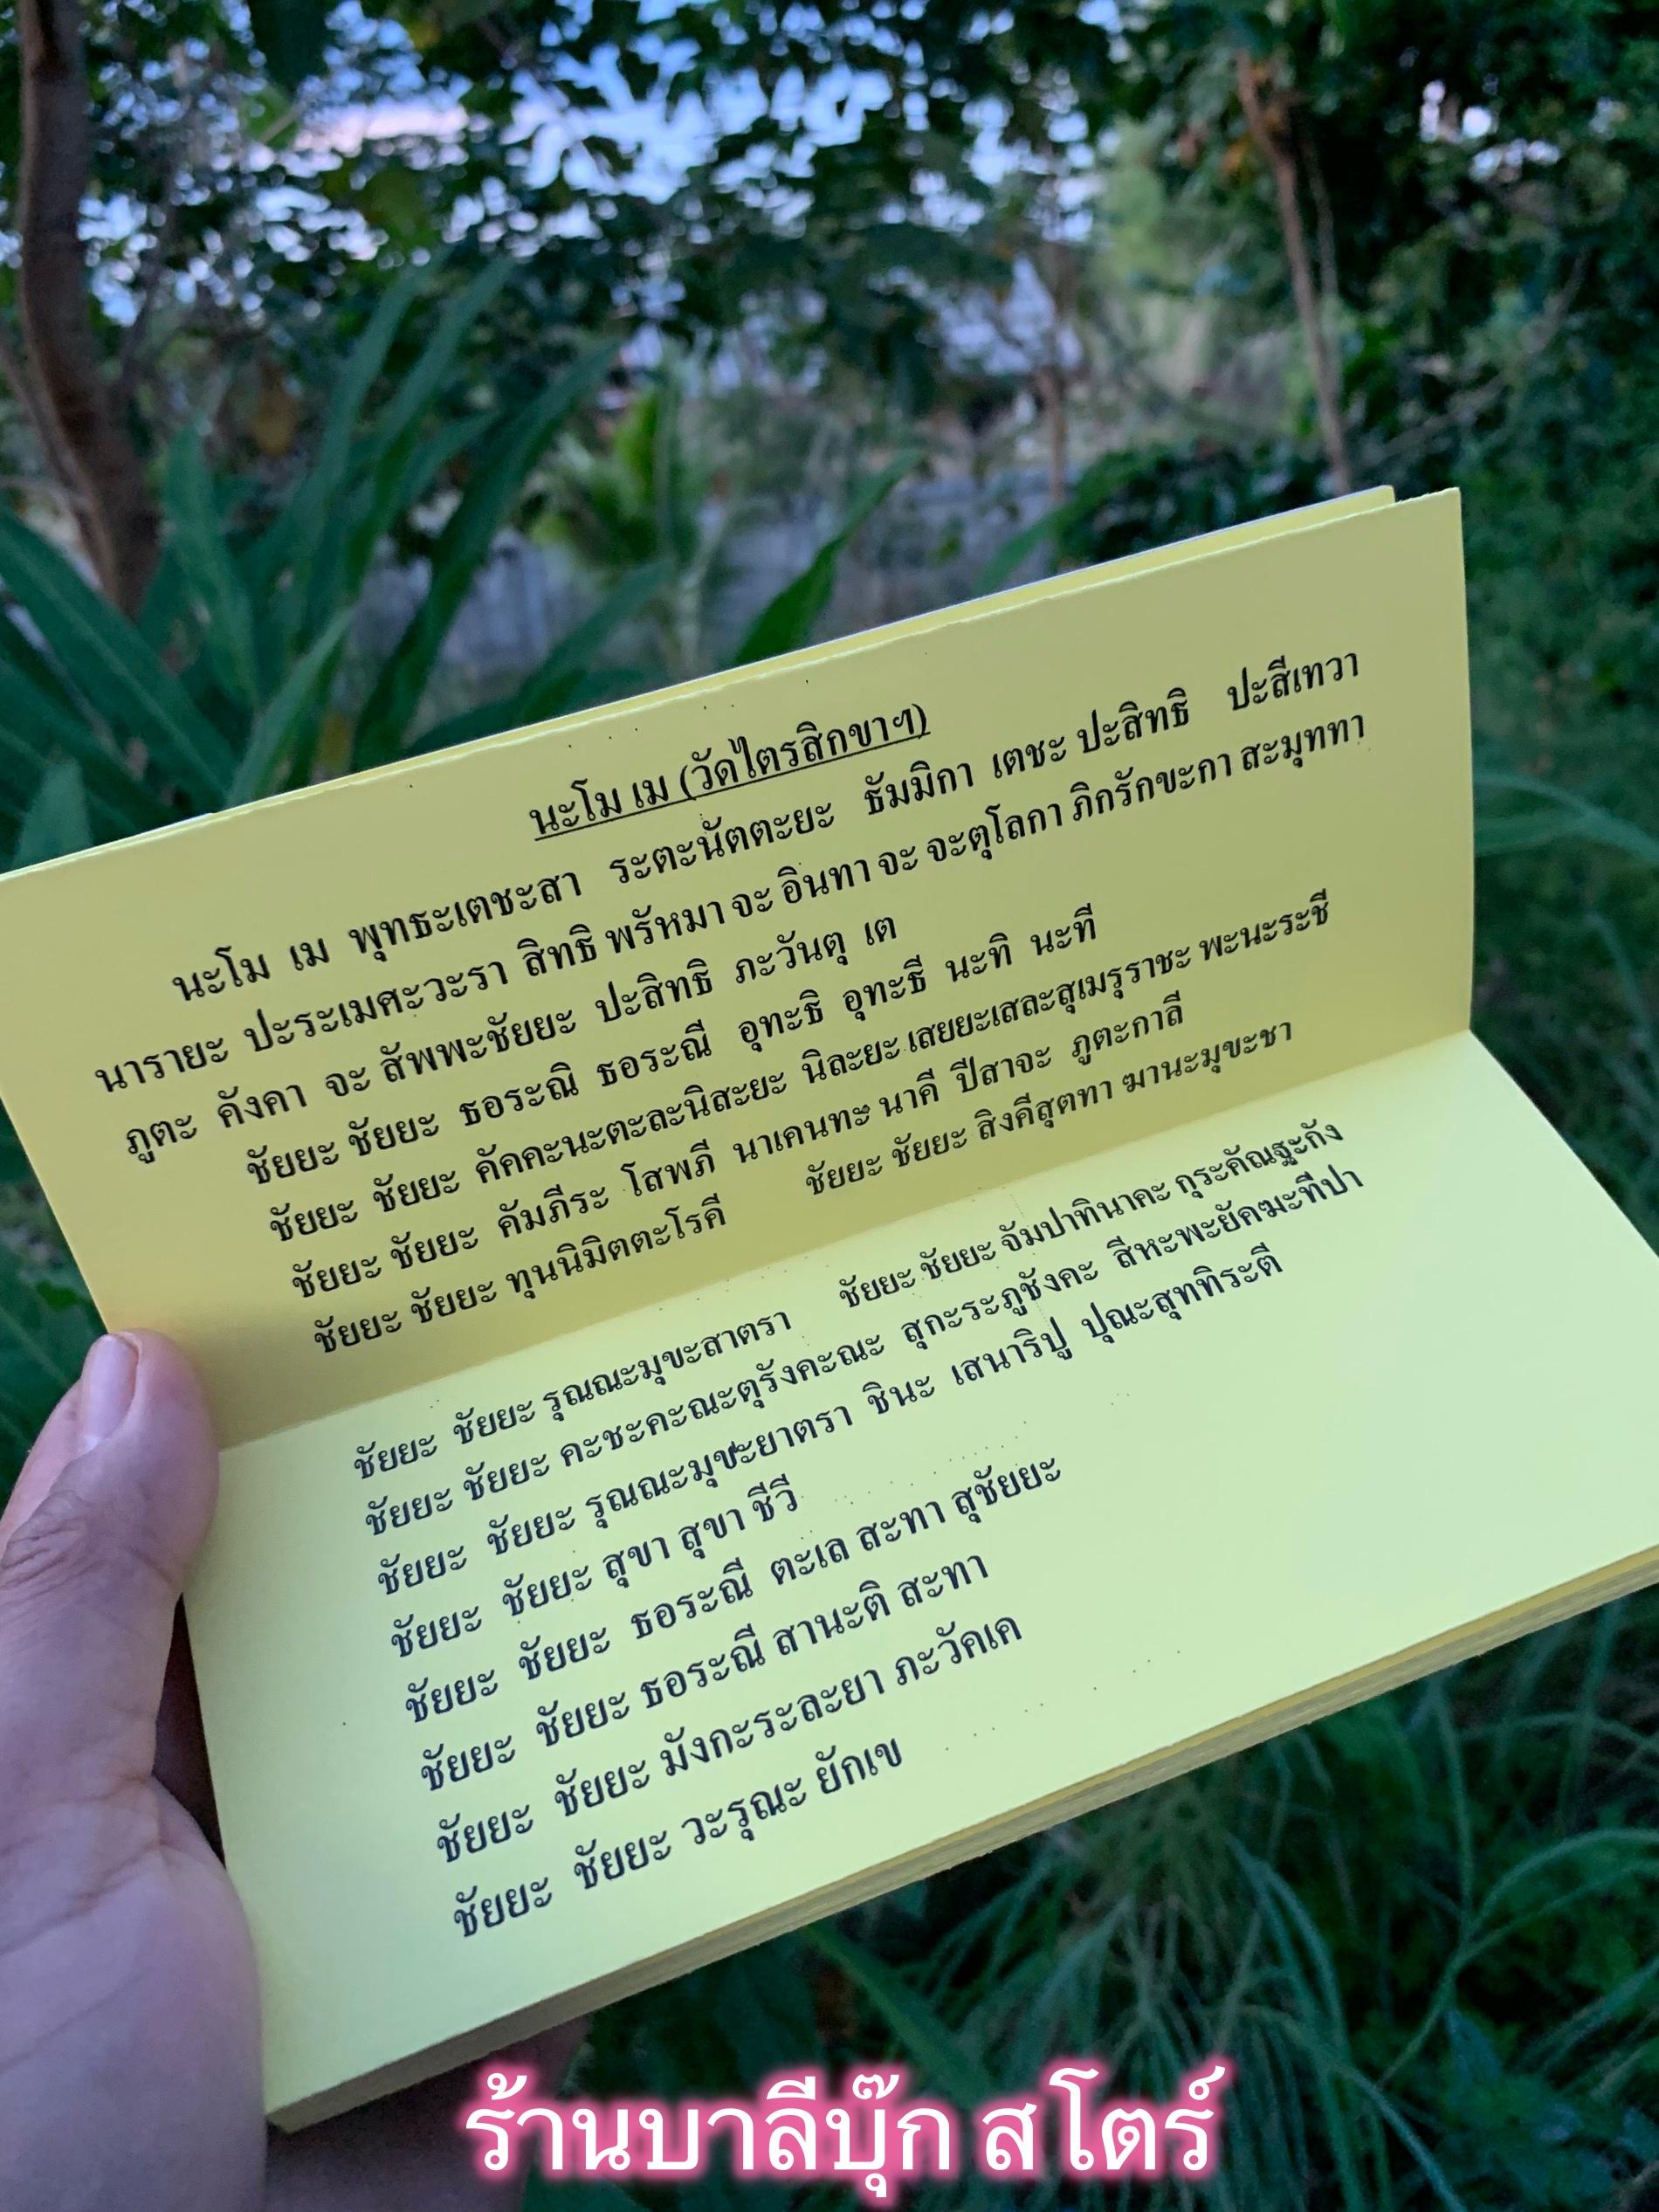 นะโม เม (วัดไตรสิกขาฯ)
นะโม เม พุทธะเตชะสา ระตะนัตตะยะ ธัมมิกา เตชะ ปะสิทธิ ปะสีเทวา
นารายะ ปะระเมศะวะรา สิทธิ พรัหมา จะ อินทา จะ จะตุโลกา ภิกรักขะกา สะมุททา
ภูตะ คังคา จะ สัพพะชัยยะ ปะสิทธิ ภะวันตุ เต
ชัยยะ ชัยยะ ธอระณิ ธอระณี อุทะธิ อุทะธี นะทิ นะที
ชัยยะ ชัยยะ คัคคะนะตะละนิสะยะ นิละยะ เสยยะเสละสุเมรุราชะ พะนะระชี
ชัยยะ ชัยยะ คัมภีระ โสพภี นาเคนทะ นาคี ปีสาจะ ภูตะกาลี
ชัยยะ ชัยยะ ทุนนิมิตตะโรคี ชัยยะ ชัยยะ สิงคีสุตทา ฆานะมุขะชา
ชัยยะ ชัยยะ รุณณะมุขะสาตรา ชัยยะ ชัยยะ จัมปาทินาคะ กุระคัณฐะกัง
ชัยยะ ชัยยะ คะชะคะณะตุรังคะณะ สุกะระภูชังคะ สีหะพะยัคฆะทีปา
ชัยยะ ชัยยะ รุณณะมุขะยาตรา ชินะ เสนาริปู ปุณะสุททิระตี
ชัยยะ ชัยยะ สุขา สุขา ชีวี
ชัยยะ ชัยยะ ธอระณี ตะเล สะทา สุชัยยะ
ชัยยะ ชัยยะ ธอระณี สานะติ สะทา
ชัยยะ ชัยยะ มังกะระละยา ภะวัคเค
ชัยยะ ชัยยะ วะรุณะ ยักเข
ร้านบาลีบุ๊ก สโตร์